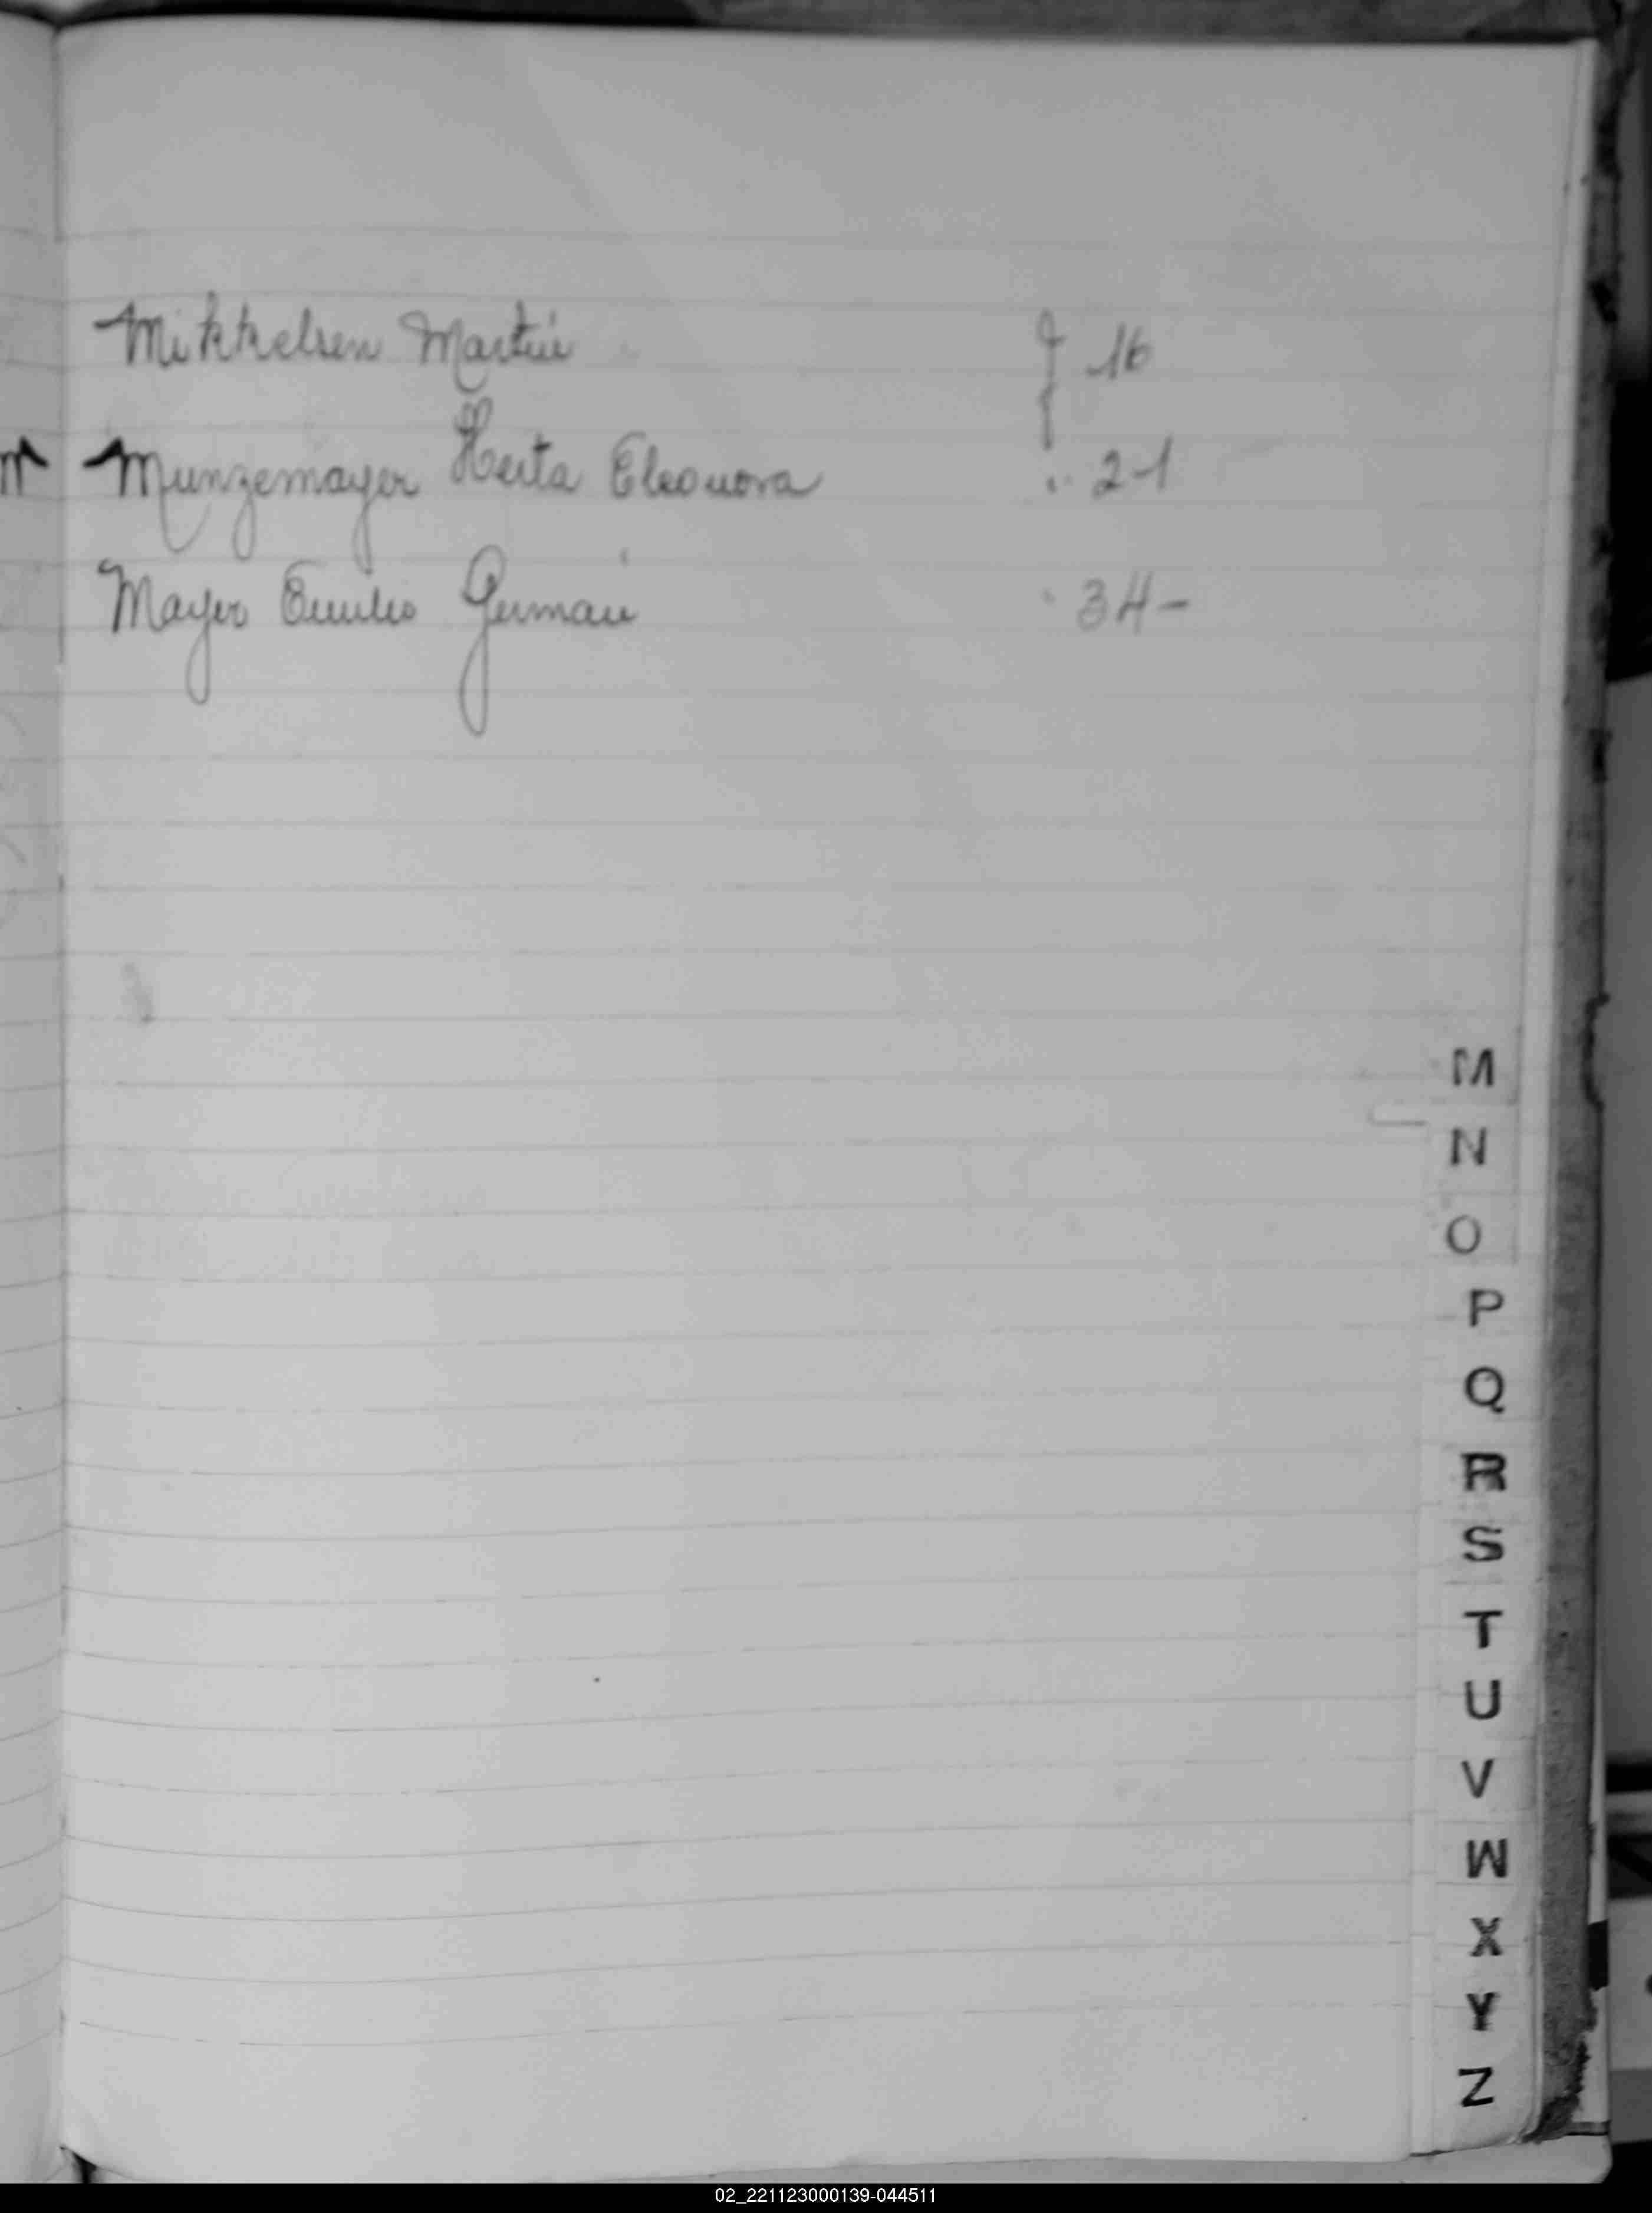 Mikkelsen Martín f 16
M Munzemayer Herta Eleonora " 21
Mayer Emilio Germán " 34-
M
N
O
P
Q
R
S
T
U
V
W
X
Y
Z
02_221123000139-044511